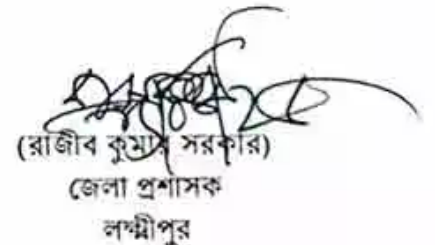 (রাজীব কুমার সরকার)
জেলা প্রশাসক
লক্ষ্মীপুর